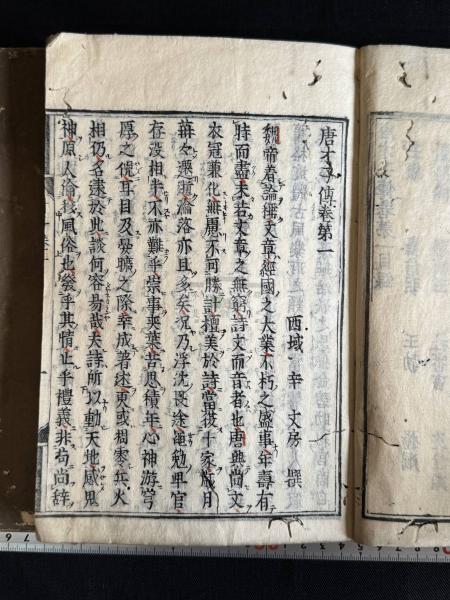 唐才子傳卷第一
西域 辛 文房 撰
魏帝著論稱文章經國之大業不朽之盛事年壽有
時而盡未若文章之無窮詩文而音者也唐興尚文
衣冠兼化無慮不可勝計擅美於詩當復十家歲月
苒苒遷逝淪落亦且多矣況乃浮沈畏途黽勉卑官
存沒相半不亦難乎崇事奕葉苦思積年心神游穹
厚之倪耳目及晏曠之際幸成著述更或凋零兵火
相仍名逮於此談何容易哉夫詩所以動天地感鬼
神厚人倫移風俗也發乎其情止乎禮義非苟尚辭